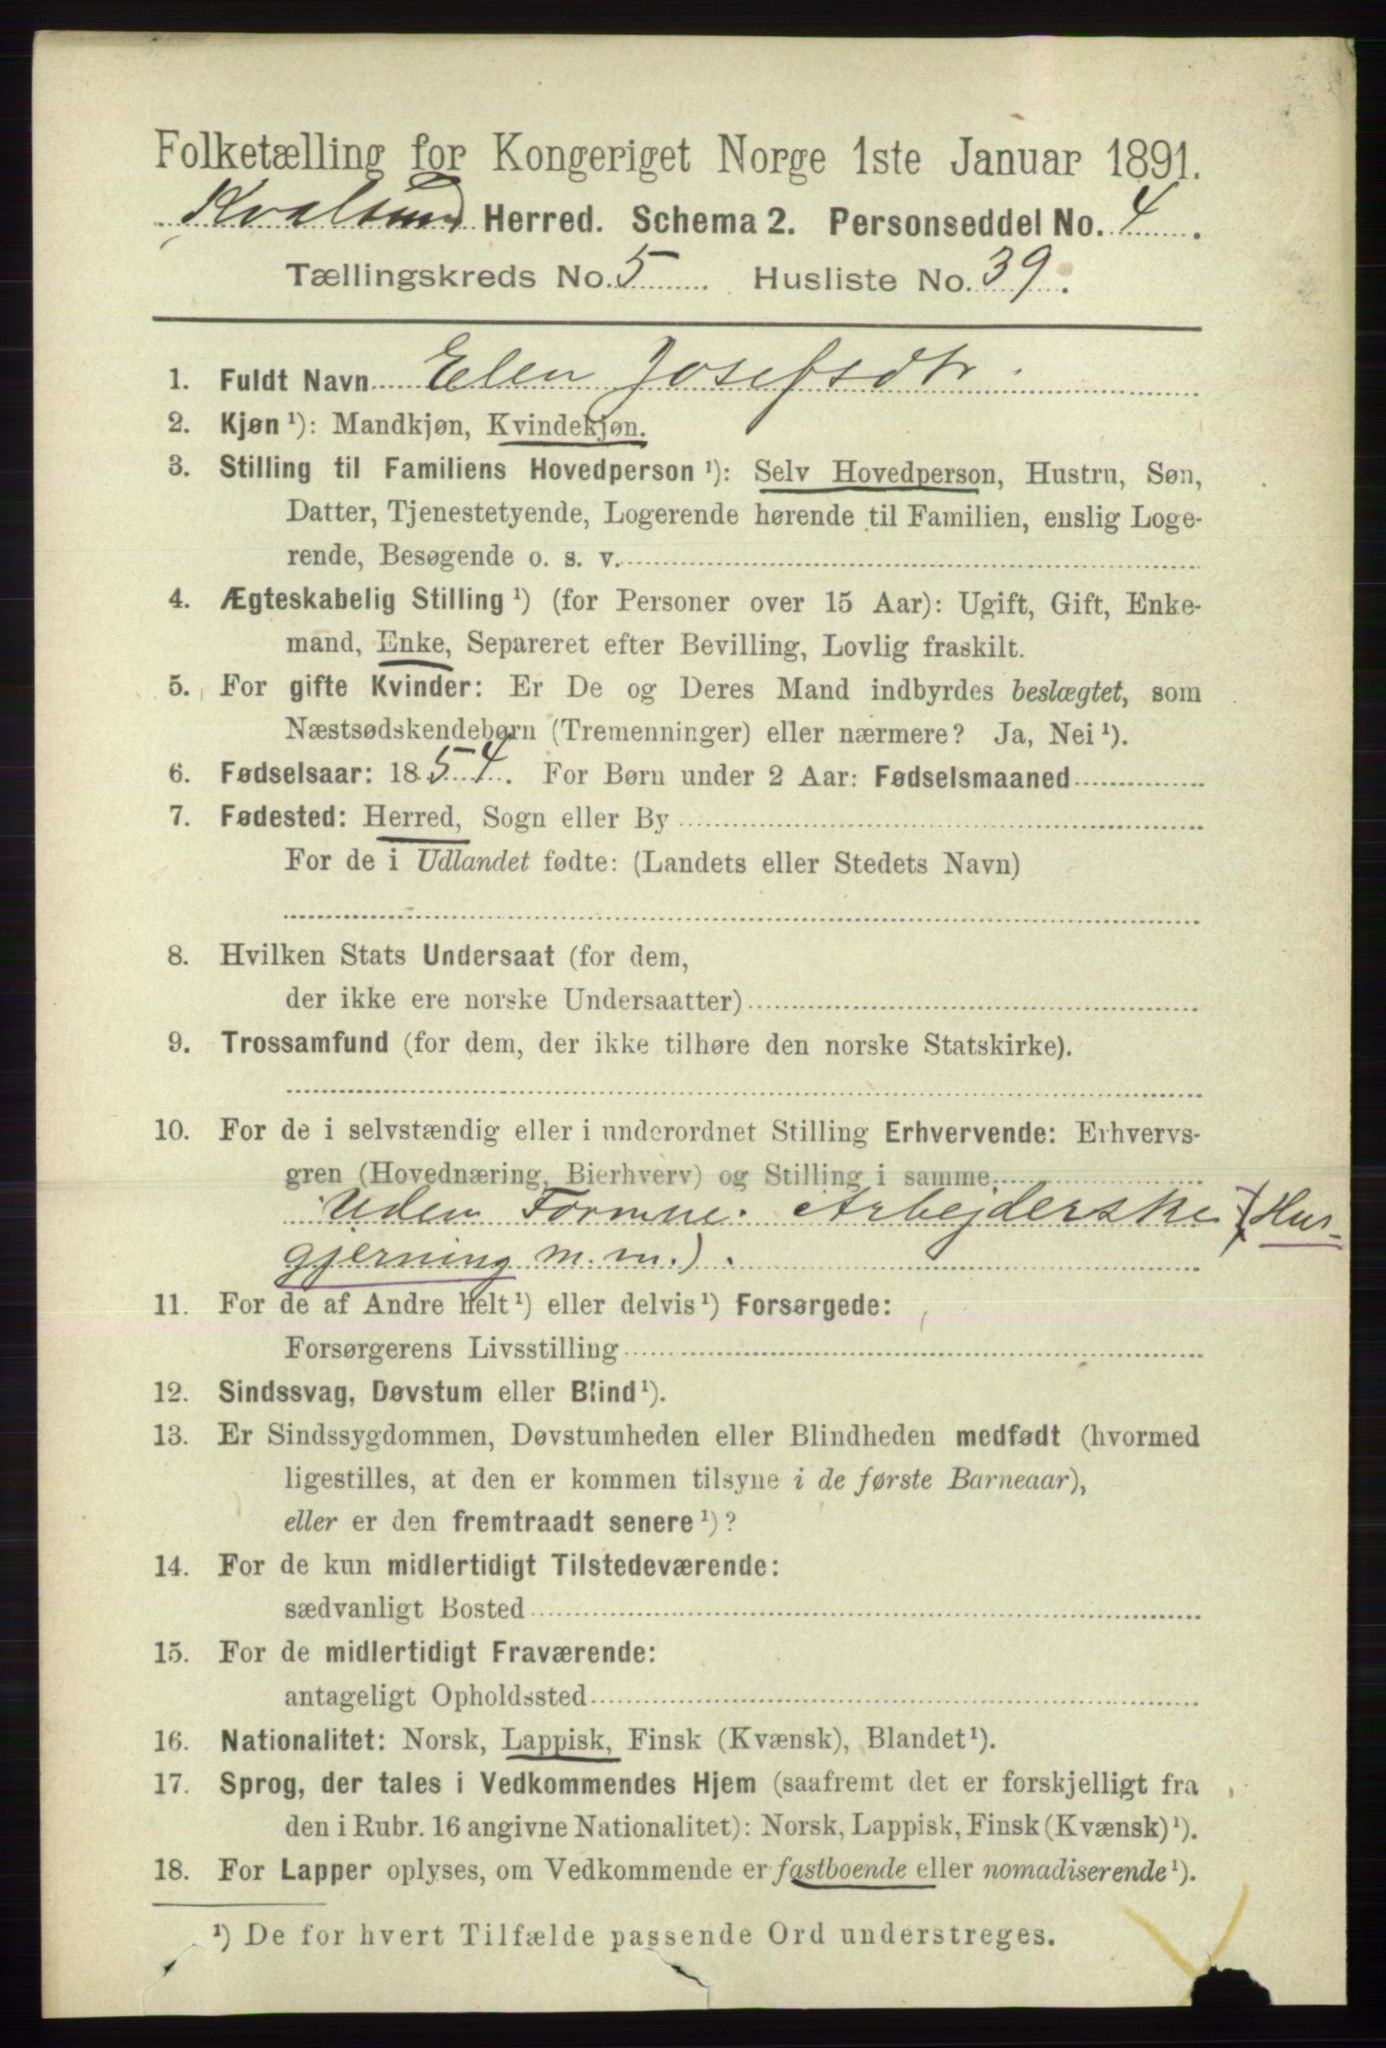 Folketælling for Kongeriget Norge 1ste Januar 1891.
Kvalsund Herred. Schema 2. Personseddel No. 4.
Tællingskreds No. 5. Husliste No. 39.
1. Fuldt Navn Elen Josefsdtr.
2. Kjøn ¹): Mandkjøn, Kvindekjøn.
3. Stilling til Familiens Hovedperson ¹): Selv Hovedperson, Hustru, Søn,
Datter, Tjenestetyende, Logerende hørende til Familien, enslig Loge-
rende, Besøgende o. s. v.
4. Ægteskabelig Stilling ¹) (for Personer over 15 Aar): Ugift, Gift, Enke-
mand, Enke, Separeret efter Bevilling, Lovlig fraskilt.
5. For gifte Kvinder: Er De og Deres Mand indbyrdes beslægtet, som
Næstsødskendebørn (Tremenninger) eller nærmere? Ja, Nei ¹).
6. Fødselsaar: 1854. For Børn under 2 Aar: Fødselsmaaned
7. Fødested: Herred, Sogn eller By
For de i Udlandet fødte: (Landets eller Stedets Navn)
8. Hvilken Stats Undersaat (for dem,
der ikke ere norske Undersaatter)
9. Trossamfund (for dem, der ikke tilhøre den norske Statskirke).
10. For de i selvstændig eller i underordnet Stilling Erhvervende: Erhvervs-
gren (Hovednæring, Bierhverv) og Stilling i samme
Uden Formue. Arbejderske (Hus-
gjerning m.m.).
11. For de af Andre helt ¹) eller delvis ¹) Forsørgede:
Forsørgerens Livsstilling
12. Sindssvag, Døvstum eller Blind ¹).
13. Er Sindssygdommen, Døvstumheden eller Blindheden medfødt (hvormed
ligestilles, at den er kommen tilsyne i de første Barneaar),
eller er den fremtraadt senere ¹)?
14. For de kun midlertidigt Tilstedeværende:
sædvanligt Bosted
15. For de midlertidigt Fraværende:
antageligt Opholdssted
16. Nationalitet: Norsk, Lappisk, Finsk (Kvænsk), Blandet ¹).
17. Sprog, der tales i Vedkommendes Hjem (saafremt det er forskjelligt fra
den i Rubr. 16 angivne Nationalitet): Norsk, Lappisk, Finsk (Kvænsk) ¹).
18. For Lapper oplyses, om Vedkommende er fastboende eller nomadiserende ¹).
¹) De for hvert Tilfælde passende Ord understreges.